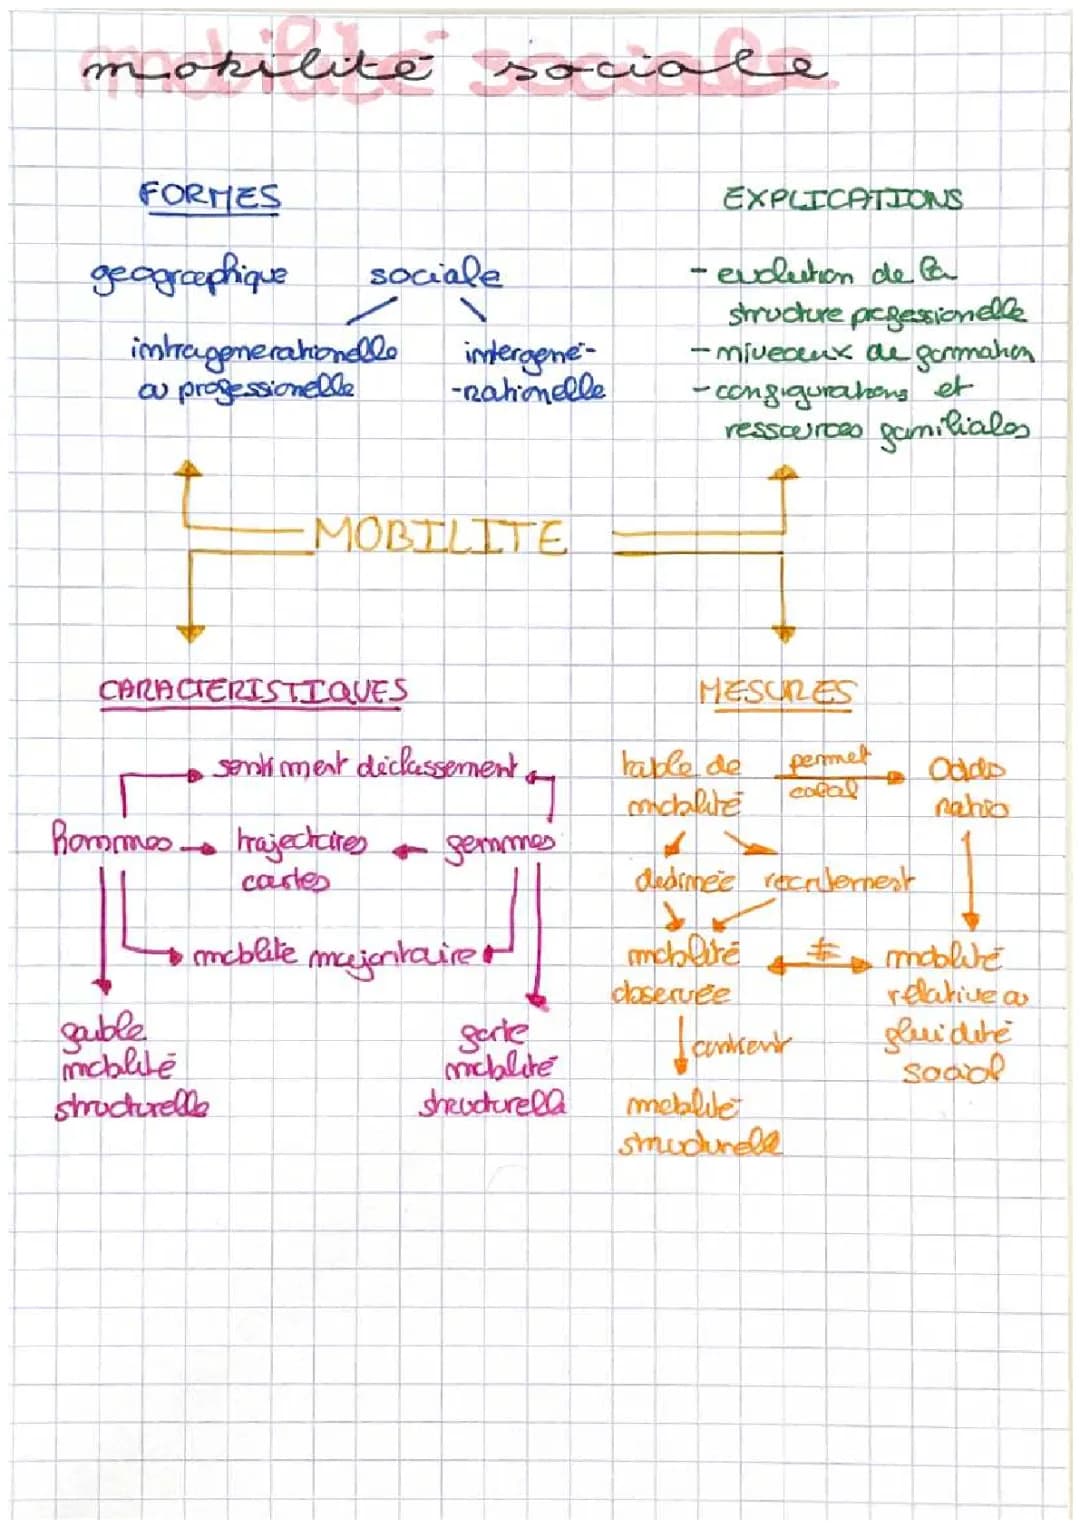 mobilité sociale
FORMES
géographique sociale
intragénérationnelle
ou professionelle
intergéné-
-rationelle
EXPLICATIONS
- evolution de la
structure professionelle
- niveaux de formation
- configurations et
ressources familiales
MOBILITE
CARACTERISTIQUES
sentiment déclassement
hommes trajectoires femmes
courtes
mobilite majoritaire
faible
mobilité
structurelle
forte
mobilité
structurelle
MESURES
table de
mobilité
permet
calcul
Odds
ratio
destinée recrutement
mobilité
observée
≠
mobilité
relative ou
fluidité
social
contient
mobilité
structurelle